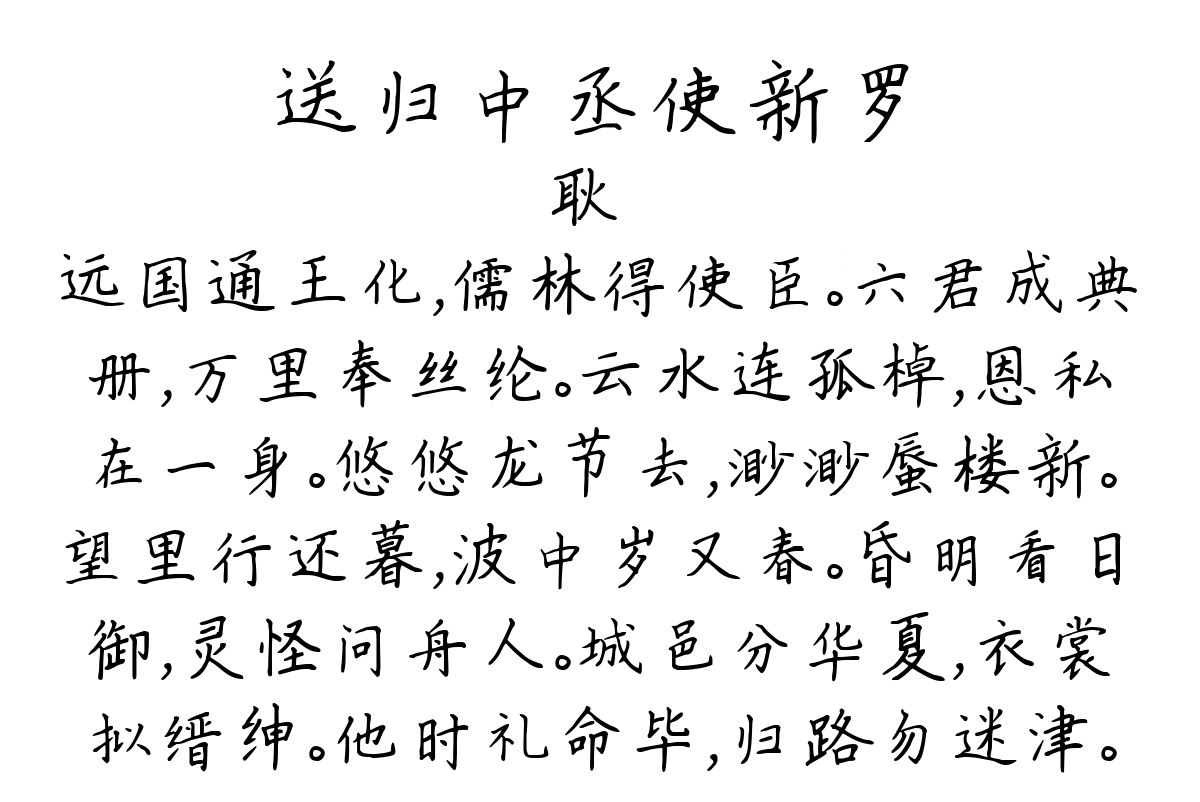 送归中丞使新罗
耿
远国通王化,儒林得使臣。六君成典
册,万里奉丝纶。云水连孤棹,恩私
在一身。悠悠龙节去,渺渺蜃楼新。
望里行还暮,波中岁又春。昏明看日
御,灵怪问舟人。城邑分华夏,衣裳
拟缙绅。他时礼命毕,归路勿迷津。